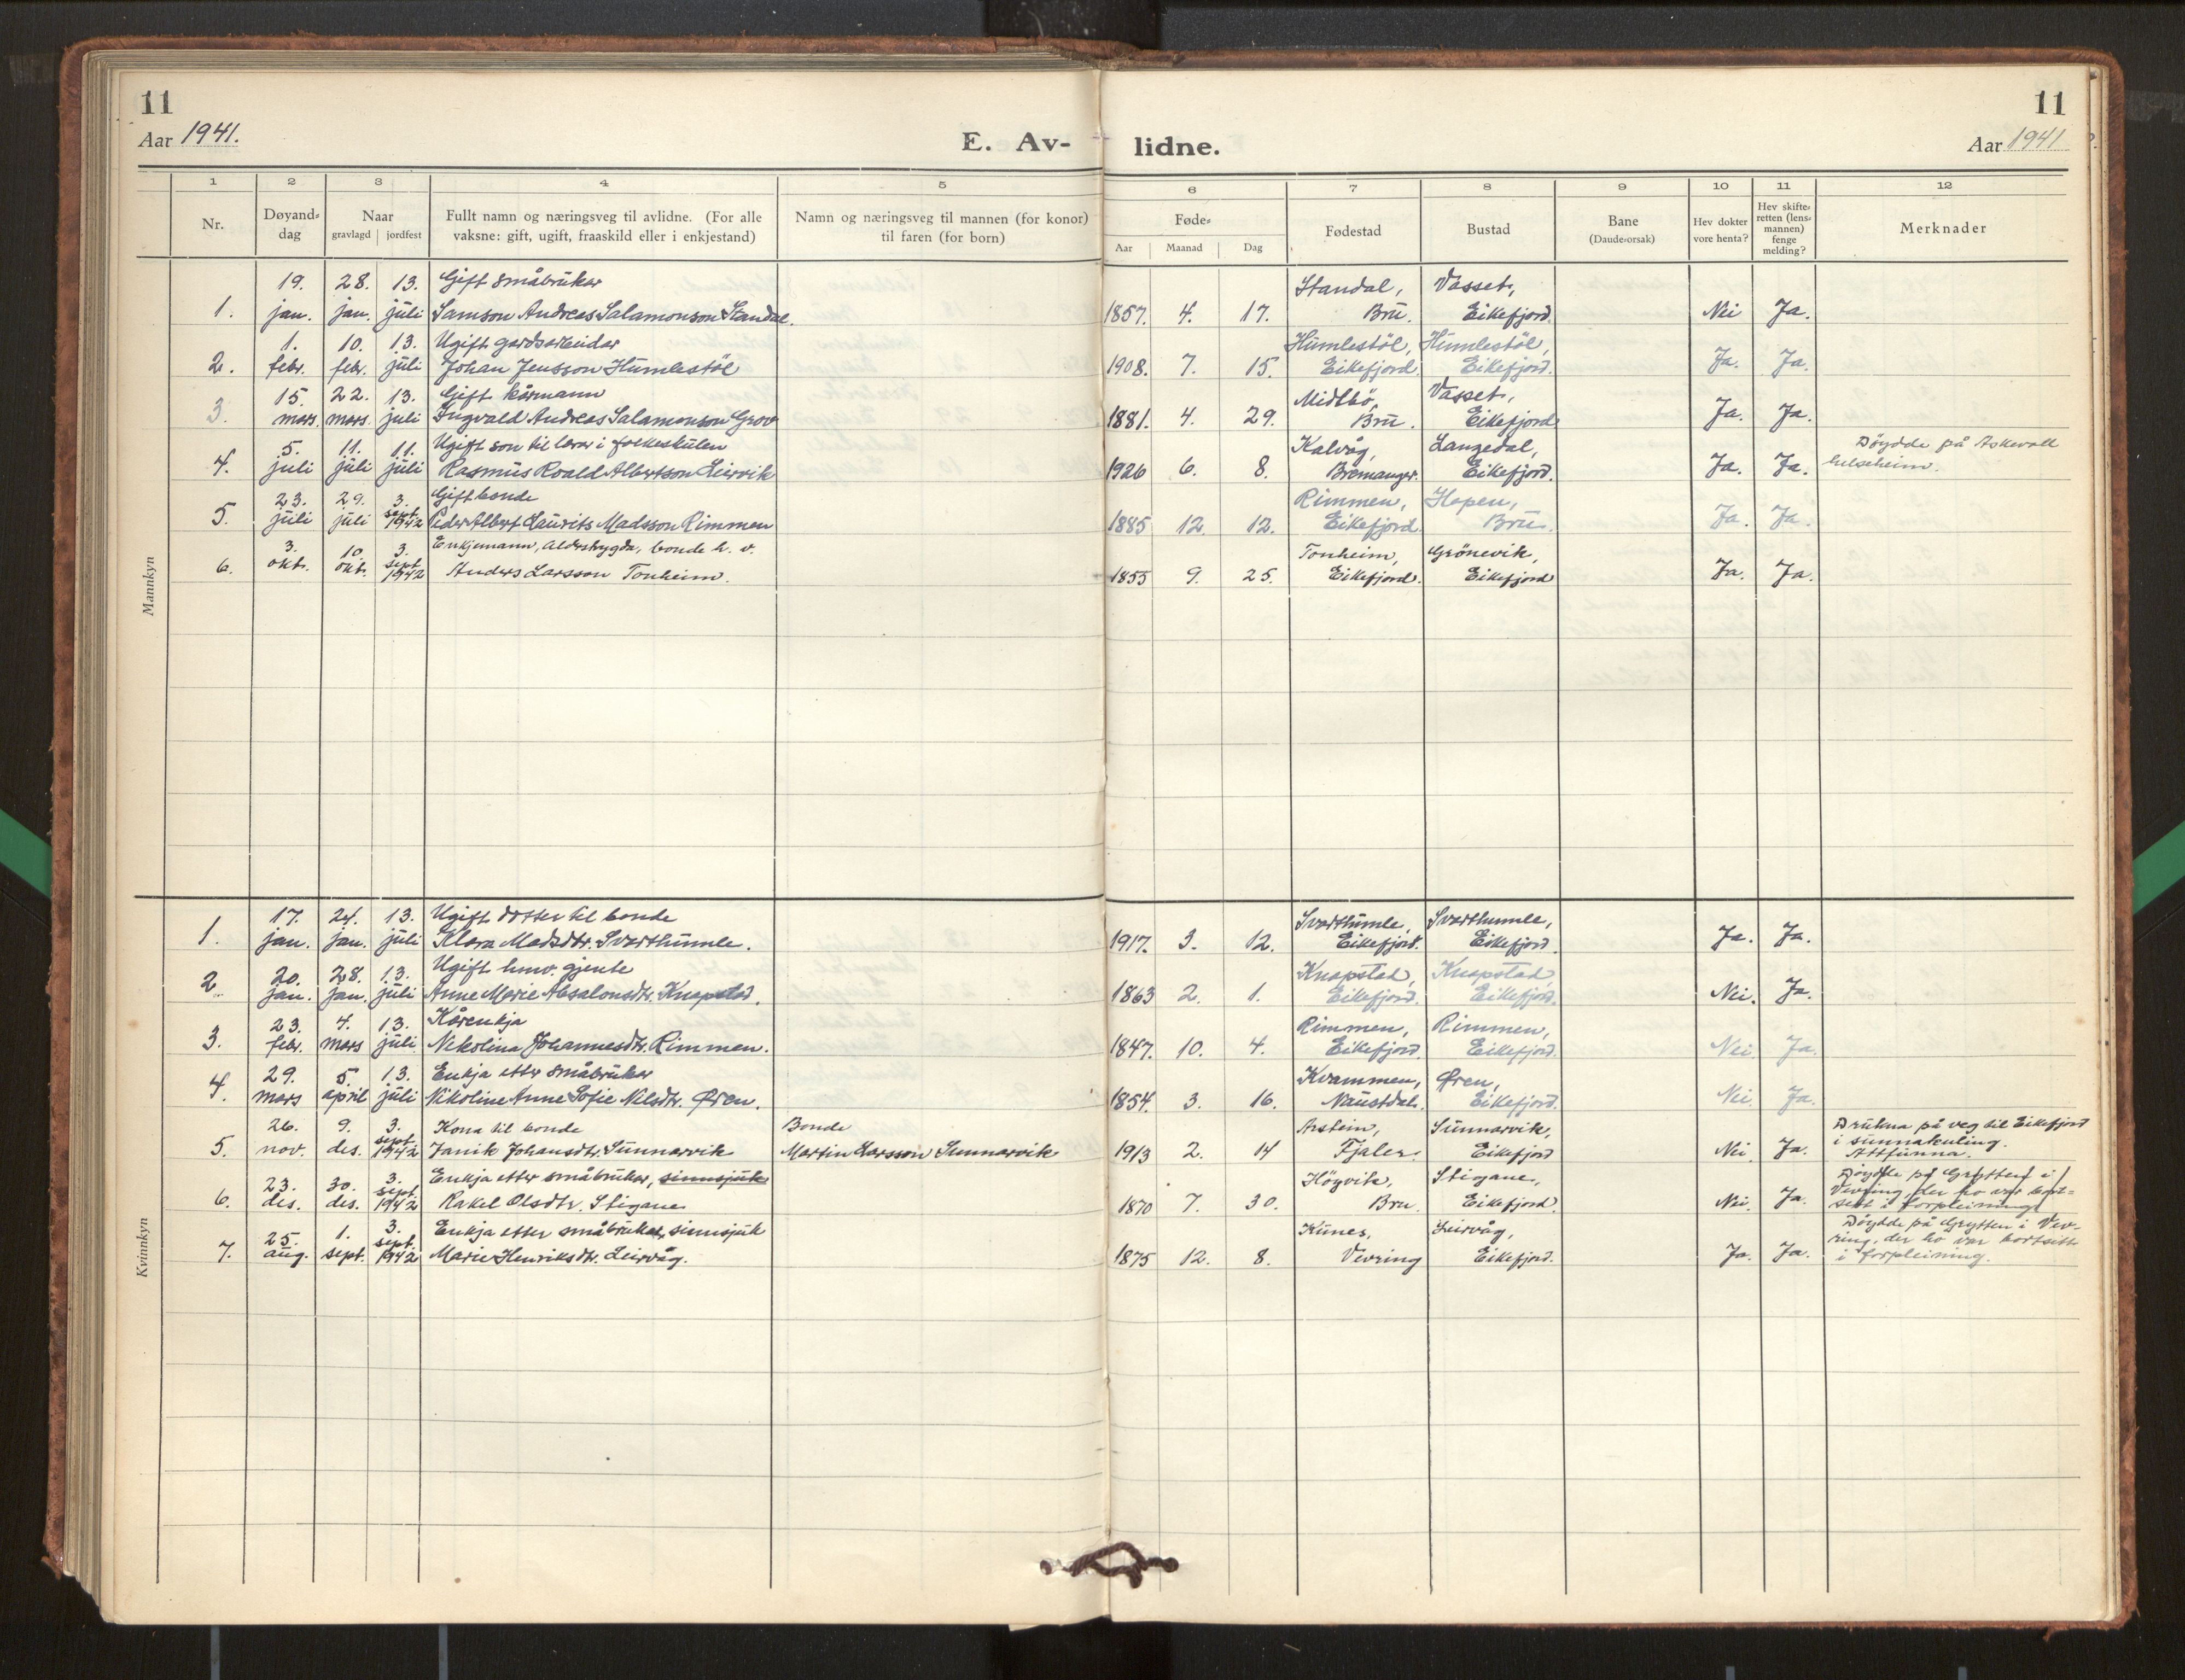 11
Aar 1941.
E. Av-
lidne.
11
Aar 1941
1 2 3 4 5 6 7 8 9 10 11 12
Nr.
Døyand-
dag
Naar
gravlagd jordfest
Fullt namn og næringsveg til avlidne. (For alle
vaksne: gift, ugift, fraaskild eller i enkjestand)
Namn og næringsveg til mannen (for konor)
til faren (for born)
Føde-
Aar Maanad Dag
Fødestad
Bustad
Bane
(Daude-orsak)
Hev dokter
vore henta?
Hev skifte-
retten (lens-
mannen)
fenge
melding?
Merknader
Mannkyn
19. 28. 13. Gift småbrukar Standal, Vasset,
1. jan. jan. juli Samson Andreas Salamonson Standal. 1857. 4. 17. Bru. Eikefjord. Nei Ja.
1. 10. 13. Ugift gardsarbeidar Humlestöl, Humlestöl,
2. febr. febr. juli Johan Jensson Humlestöl 1908. 7. 15. Eikefjord. Eikefjord. Ja. Ja.
15. 22. 13. Gift kårmann Midtbö, Vasset,
3. mars. mars. juli Ingvald Andreas Salamonson Grov 1881. 4. 29. Bru. Eikefjord Ja. Ja.
5. 11. 11. Ugift son til lærar i folkeskulen Kalvåg, Langedal, Döydde på Askevoll
4. juli juli juli Rasmus Roald Albertson Leirvik 1926 6. 8. Bremanger. Eikefjord. Ja. Ja. helseheim.
23. 29. 3. Gift bonde Rimmen, Hopen,
5. juli juli sept. 1942 Peder Albert Laurits Madsson Rimmen 1885 12. 12. Eikefjord. Bru. Ja. Ja.
3. 10. 3. Enkjemann, alderstrygda, bonde h. v. Tonheim, Grönevik,
6. okt. okt. sept. 1942 Anders Larsson Tonheim. 1855 9. 25. Eikefjord. Eikefjord Ja. Ja.
Kvinnkyn
17. 24. 13. Ugift dotter til bonde Svarthumle, Svarthumle,
1. jan. jan. juli Klara Madsdtr. Svarthumle. 1917. 3. 12. Eikefjord. Eikefjord. Ja. Ja.
20. 28. 13. Ugift hmv. gjente Knapstad, Knapstad,
2. jan. jan. juli Anne Marie Absalonsdtr. Knapstad. 1863 2. 1. Eikefjord. Eikefjord. Nei. Ja.
23. 4. 13. Kårenkja Rimmen, Rimmen,
3. febr. mars juli Nikolina Johannesdtr. Rimmen. 1847. 10. 4. Eikefjord. Eikefjord. Nei Ja.
29. 5. 13. Enkja etter småbrukar Kvammen, Øren,
4. mars april juli Nikoline Anne Sofie Nilsdtr. Øren. 1854. 3. 16. Naustdal. Eikefjord. Nei Ja.
26. 9. 3. Kona til bonde Bonde Arstein, Sunnarvik, Drukna på veg til Eikefjord
5. nov. des. sept. 1942 Janik Johansdtr. Sunnarvik Martin Larsson Sunnarvik 1913 2. 14 Fjaler. Eikefjord Nei. Ja. i sunnakuling.
Attfunna.
23. 30. 3. Enkja etter småbrukar, sinnsjuk Höyvik, Stigane, Döydde på Grytten i
6. des. des. sept. 1942 Rakel Olsdtr. Stigane 1870 7. 30. Bru. Eikefjord. Nei. Ja. Vevring, der ho var bort-
sett i forpleining
25. 1. 3. Enkja etter småbrukar, sinnsjuk Kunes, Leirvåg, Döydde på Grytten i Vev-
7. aug. sept. sept. 1942 Marie Henriksdtr. Leirvåg. 1875 12. 8. Vevring Eikefjord. Ja. Ja. ring, der ho var bortsett
i forpleining.